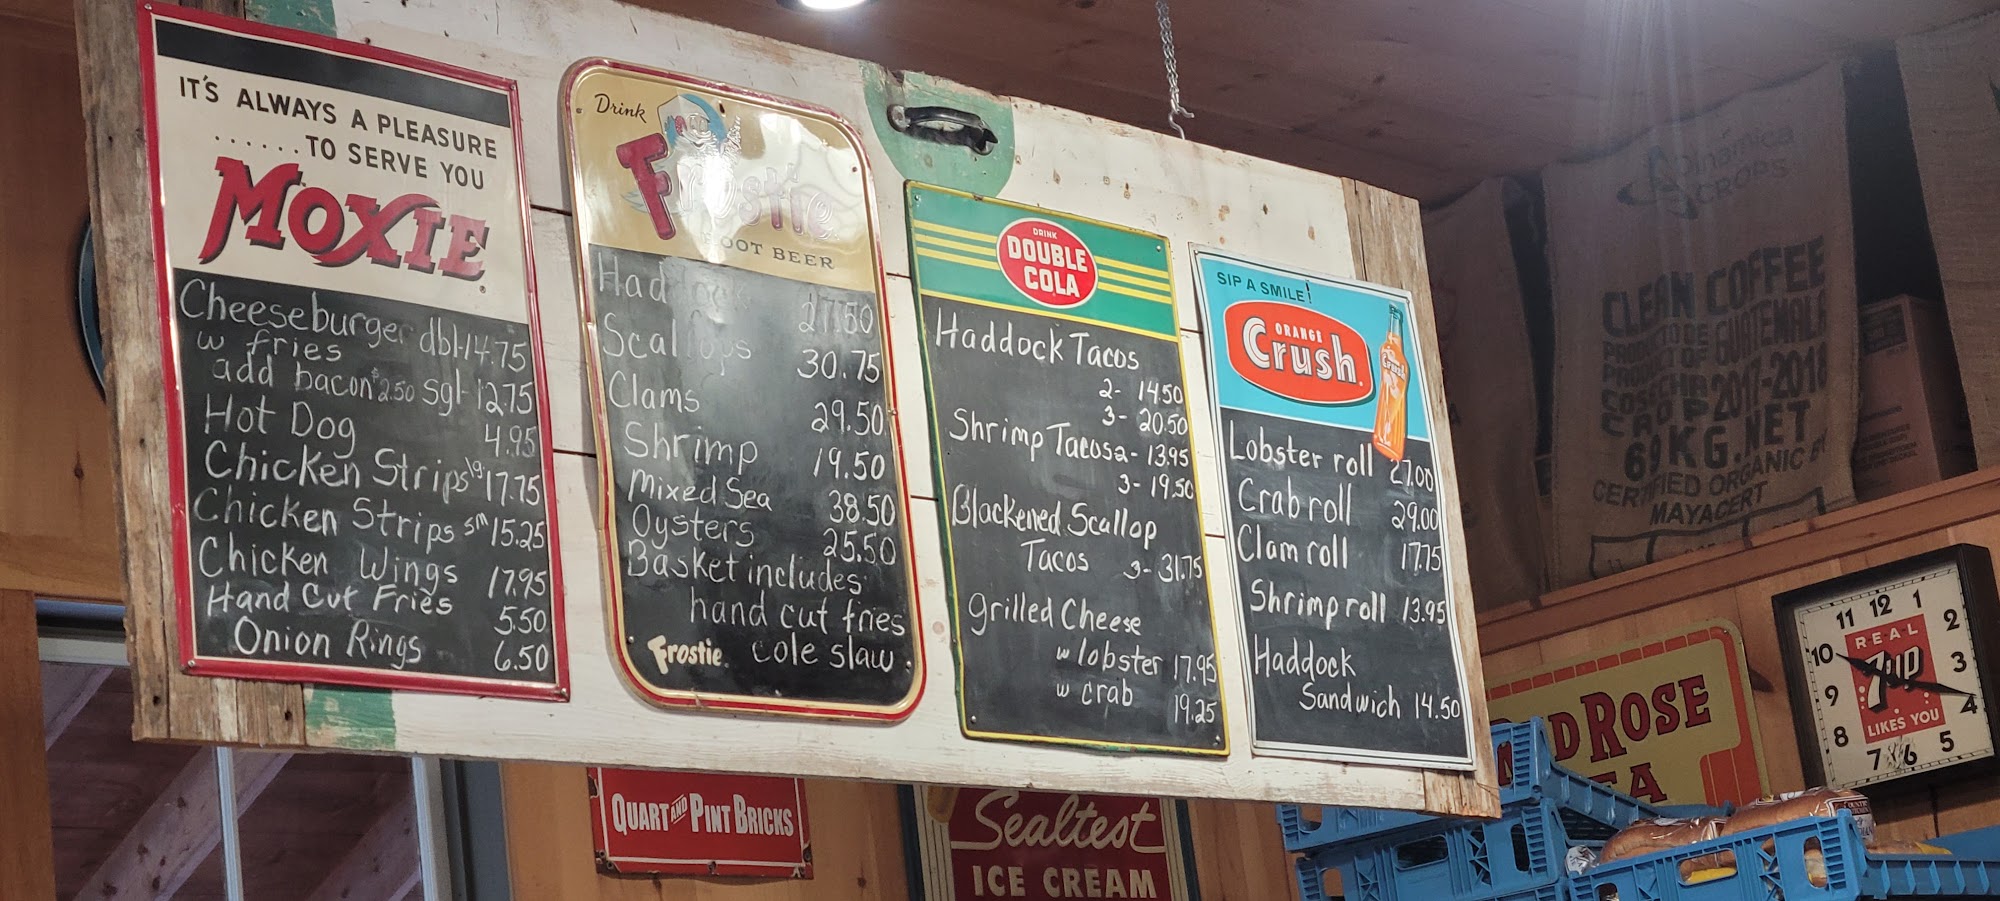 IT'S ALWAYS A PLEASURE
......TO SERVE YOU
MOXIE
Cheeseburger dbl-14.75
w fries
add bacon $2.50 sgl-12.75
Hot Dog 4.95
Chicken Strips lg 17.75
Chicken Strips sm 15.25
Chicken Wings 17.95
Hand Cut Fries 5.50
Onion Rings 6.50
Drink
Frostie
ROOT BEER
Haddock 27.50
Scallops 30.75
Clams 29.50
Shrimp 19.50
Mixed Sea 38.50
Oysters 25.50
Basket includes
hand cut fries
Frostie. cole slaw
DRINK
DOUBLE
COLA
Haddock Tacos
2- 14.50
3- 20.50
Shrimp Tacos 2- 13.95
3- 19.50
Blackened Scallop
Tacos 3- 31.75
Grilled Cheese
w lobster 17.95
w crab 19.25
SIP A SMILE!
ORANGE
Crush
Lobster roll 27.00
Crab roll 29.00
Clam roll 17.75
Shrimp roll 13.95
Haddock
Sandwich 14.50
Dinamica
CROPS
CLEAN COFFEE
GUATEMALA
2017-2018
CROP
69 KG. NET
CERTIFIED ORGANIC BY
MAYACERT
12 1 2 3 4 5 6 7 8 9 10 11
REAL
7UP
LIKES YOU
RED ROSE
QUART AND PINT BRICKS
Sealtest
ICE CREAM